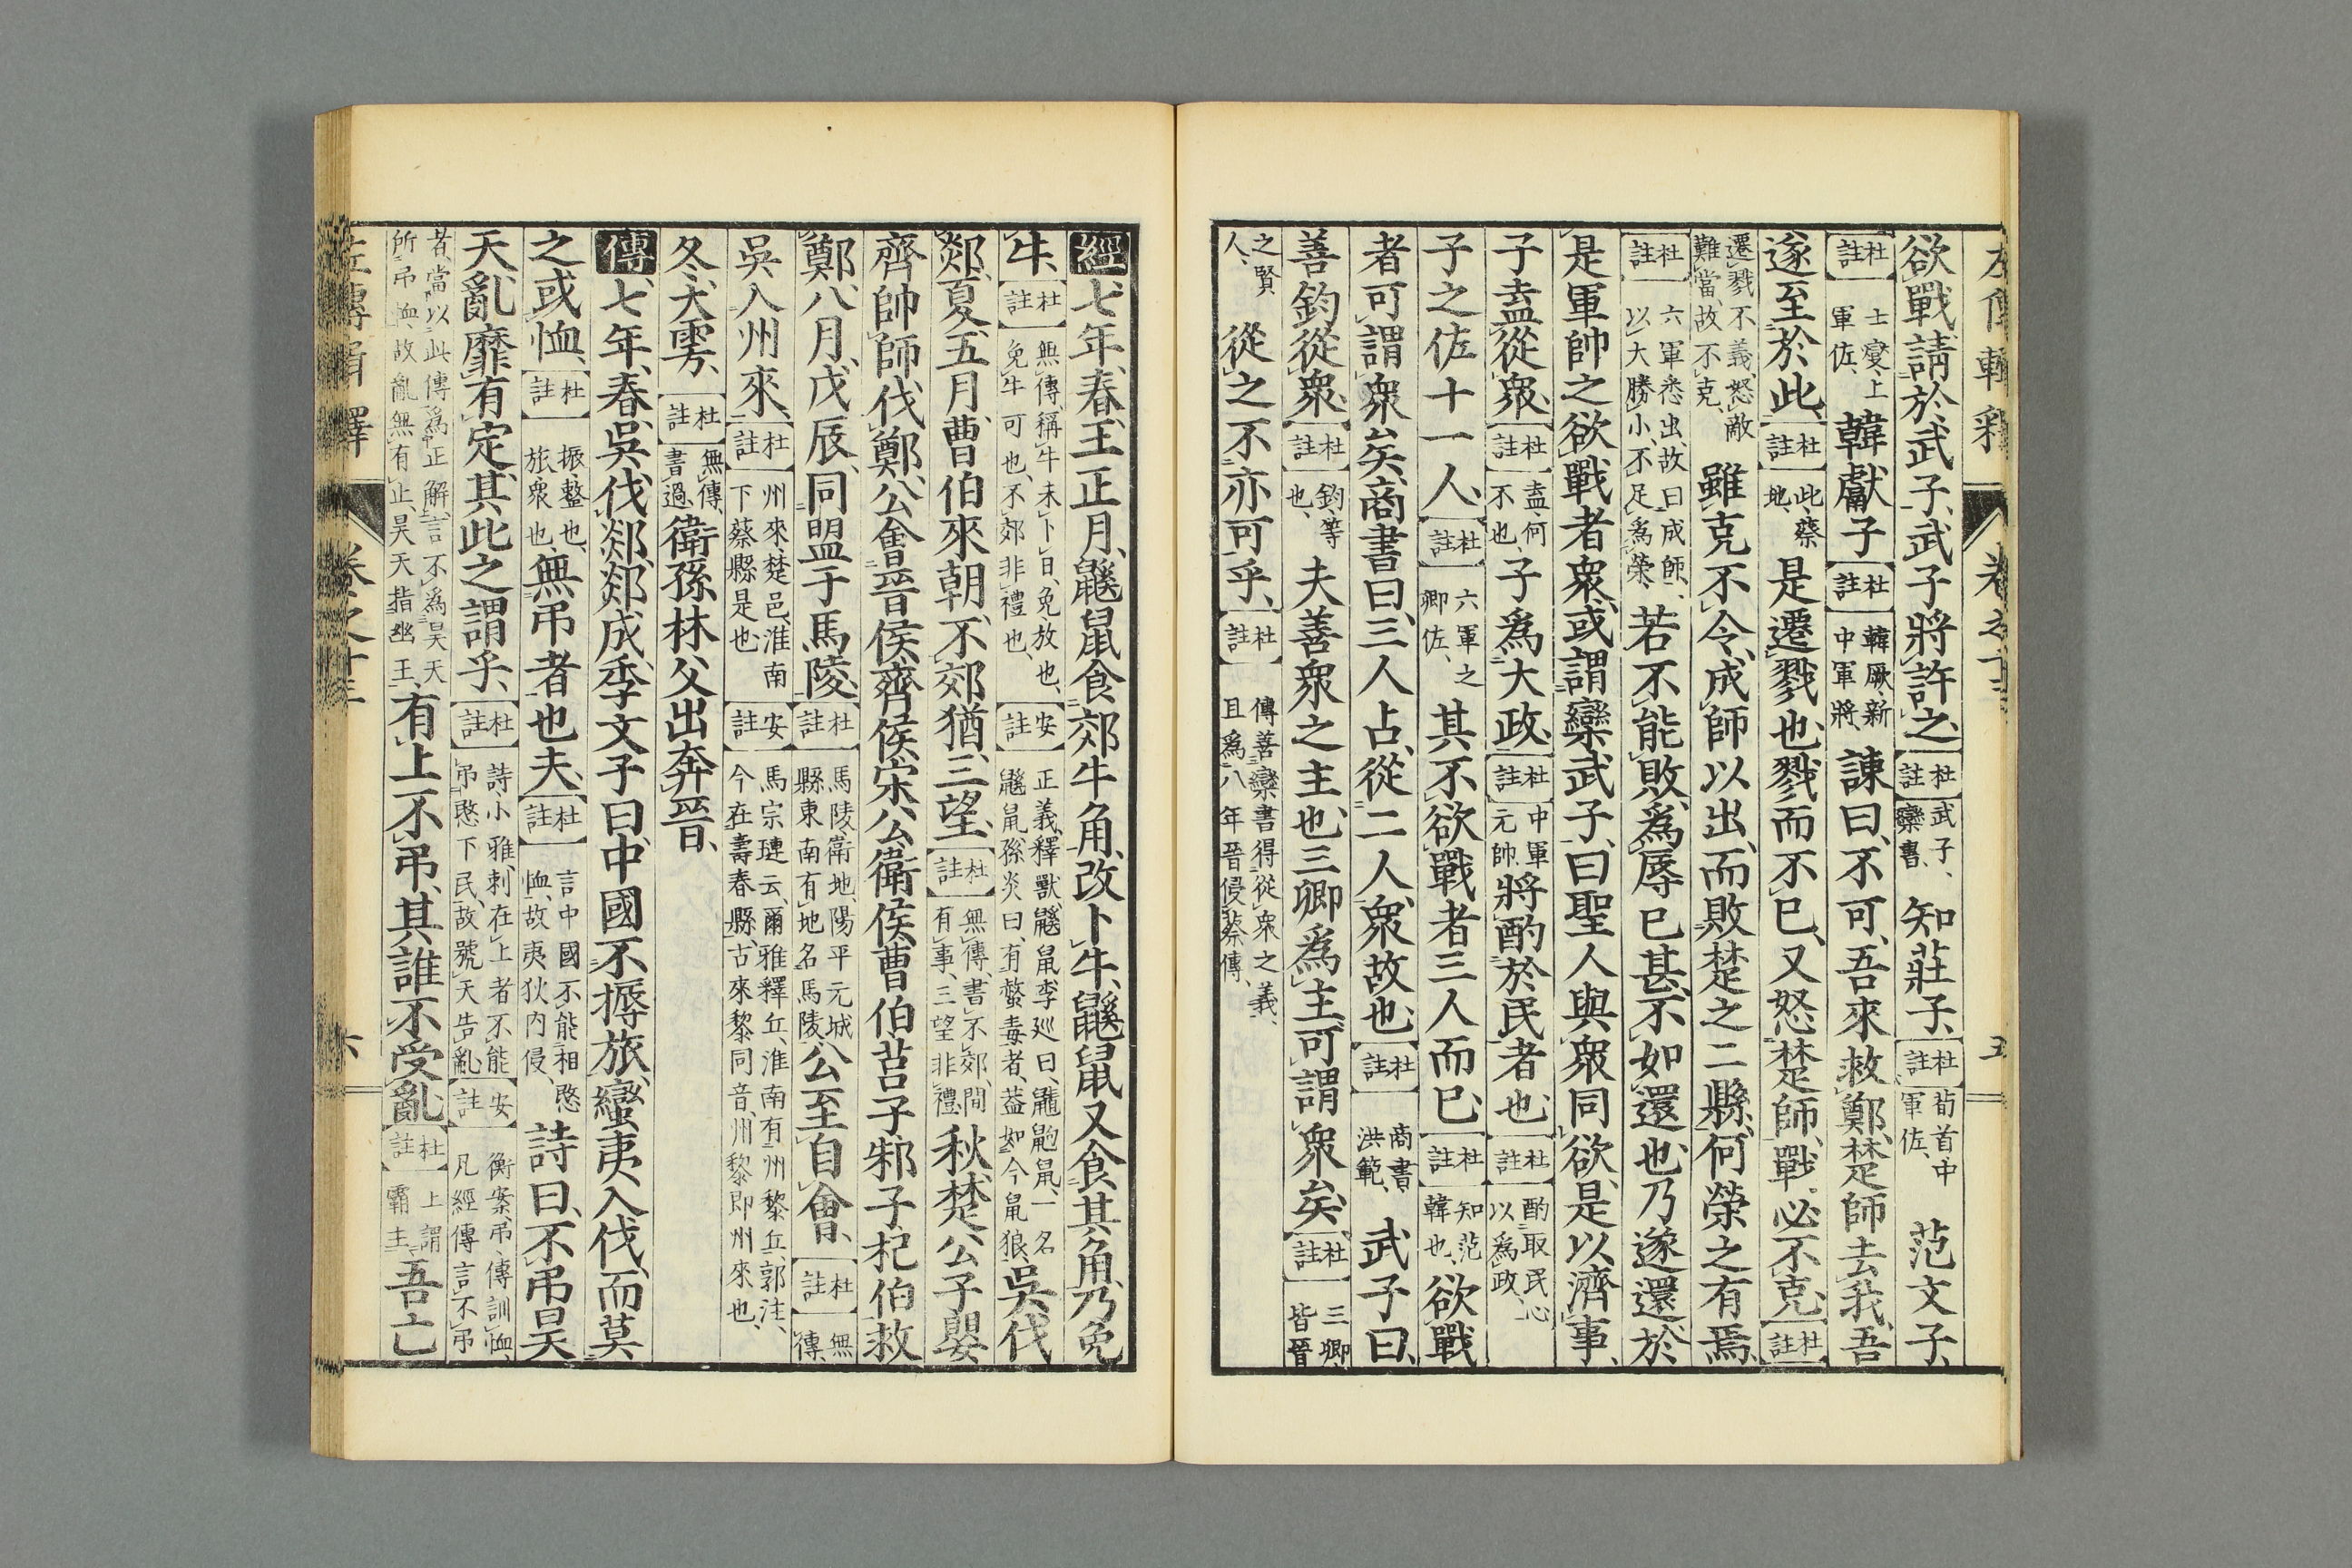 左傳輯釋 卷之十三 五
欲戰、請於武子、武子將許之、杜註武子、欒書、知莊子、杜註荀首、中軍佐、范文子、
杜註士燮、上軍佐、韓獻子、杜註韓厥、新中軍將、諫曰、不可、吾來救鄭、楚師去我、吾
遂至於此、杜註此、蔡地、是遷戮也、戮而不已、又怒楚師、戰必不克、杜註
遷戮不義、怒敵難當、故不克、雖克不令、成師以出、而敗楚之二縣、何榮之有焉、
杜註六軍悉出、故曰成師、以大勝小、不足爲榮、若不能敗、爲辱已甚、不如還也、乃遂還、於
是軍帥之欲戰者衆、或謂欒武子曰、聖人與衆同欲、是以濟事、
子盍從衆、杜註盍、何不也、子爲大政、杜註中軍元帥、將酌於民者也、杜註酌取民心以爲政、
子之佐十一人、杜註六軍之卿佐、其不欲戰者三人而已、杜註知范韓也、欲戰
者可謂衆矣、商書曰、三人占、從二人、衆故也、杜註商書、洪範、武子曰、
善鈞從衆、杜註鈞、等也、夫善衆之主也、三卿爲主、可謂衆矣、杜註三卿、皆晉
之賢人、從之不亦可乎、杜註傳善欒書得從衆之義、且爲八年晉侵蔡傳、
經七年、春、王正月、鼷鼠食郊牛角、改卜牛、鼷鼠又食其角、乃免
牛、杜註無傳、稱牛未卜日、免放也、免牛可也、不郊非禮也、安註正義、釋獸鼷鼠、李巡曰、鼱鼩鼠、一名鼷鼠、孫炎曰、有螫毒者、蓋如今鼠狼、吳伐
郯、夏、五月、曹伯來朝、不郊、猶三望、杜註無傳、書不郊、間有事、三望非禮、秋、楚公子嬰
齊帥師伐鄭、公會晉侯齊侯宋公衛侯曹伯莒子邾子杞伯救
鄭、八月、戊辰、同盟于馬陵、杜註馬陵、衛地、陽平元城縣東南有地名馬陵、公至自會、杜註無傳、
吳入州來、杜註州來、楚邑、淮南下蔡縣是也、安註馬宗璉云、爾雅釋丘、淮南有州黎丘、郭注、今在壽春縣、古來黎同音、州黎即州來也、
冬、大雩、杜註無傳、書過、衛孫林父出奔晉、
傳七年、春、吳伐郯、郯成、季文子曰、中國不振旅、蠻夷入伐、而莫
之或恤、杜註振、整也、旅、衆也、無弔者也夫、杜註言中國不能相愍恤、故夷狄内侵、詩曰、不弔昊
天、亂靡有定、其此之謂乎、杜註詩小雅、刺在上者不能弔愍下民、故號天告亂、安註衡案、弔、傳訓恤、凡經傳言不弔
者、當以此傳爲正解、言不爲昊天所弔恤、故亂無有止、昊天指幽王、有上不弔、其誰不受亂、杜註上謂霸主、吾亡
左傳輯釋 卷之十三 六